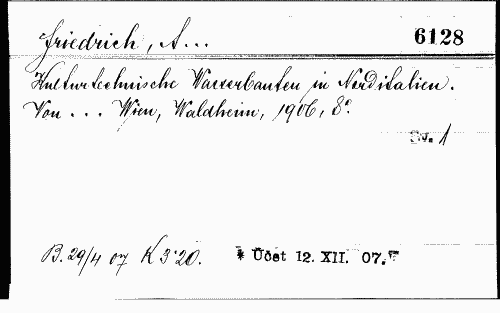 Friedrich, A...
6128
Kulturtechnische Wasserbauten in Norditalien.
Von ... Wien, Waldheim, 1906, 8°.
Sv. 1
B. 29/4 07 K 3·20. * Účet 12. XII. 07.